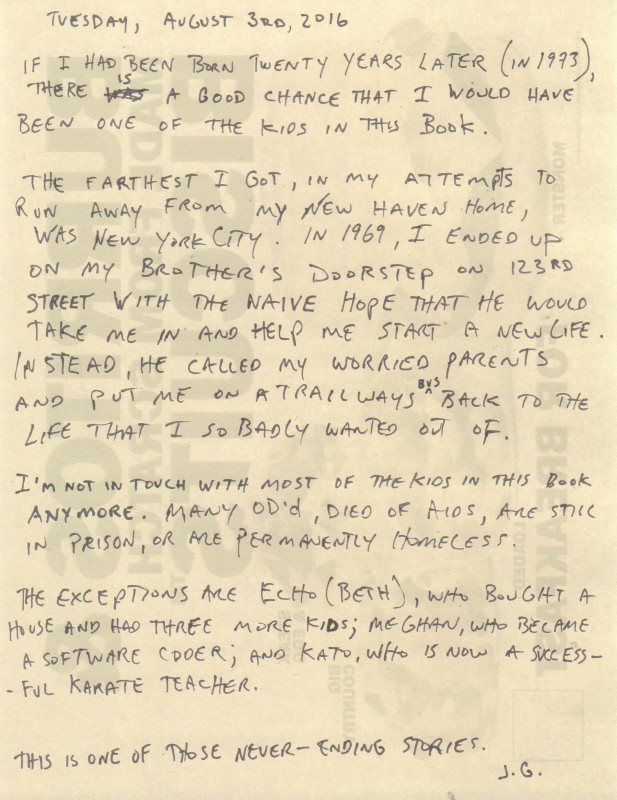 TUESDAY, AUGUST 3RD, 2016
IF I HAD BEEN BORN TWENTY YEARS LATER (IN 1973),
THERE IS A GOOD CHANCE THAT I WOULD HAVE
BEEN ONE OF THE KIDS IN THIS BOOK.
THE FARTHEST I GOT, IN MY ATTEMPTS TO
RUN AWAY FROM MY NEW HAVEN HOME,
WAS NEW YORK CITY. IN 1969, I ENDED UP
ON MY BROTHER'S DOORSTEP ON 123RD
STREET WITH THE NAIVE HOPE THAT HE WOULD
TAKE ME IN AND HELP ME START A NEW LIFE.
INSTEAD, HE CALLED MY WORRIED PARENTS
AND PUT ME ON A TRAILWAYS BUS BACK TO THE
LIFE THAT I SO BADLY WANTED OUT OF.
I'M NOT IN TOUCH WITH MOST OF THE KIDS IN THIS BOOK
ANYMORE. MANY OD'd, DIED OF AIDS, ARE STILL
IN PRISON, OR ARE PERMANENTLY HOMELESS.
THE EXCEPTIONS ARE ECHO (BETH), WHO BOUGHT A
HOUSE AND HAD THREE MORE KIDS; MEGHAN, WHO BECAME
A SOFTWARE CODER; AND KATO, WHO IS NOW A SUCCESS-
-FUL KARATE TEACHER.
THIS IS ONE OF THOSE NEVER-ENDING STORIES.
J.G.